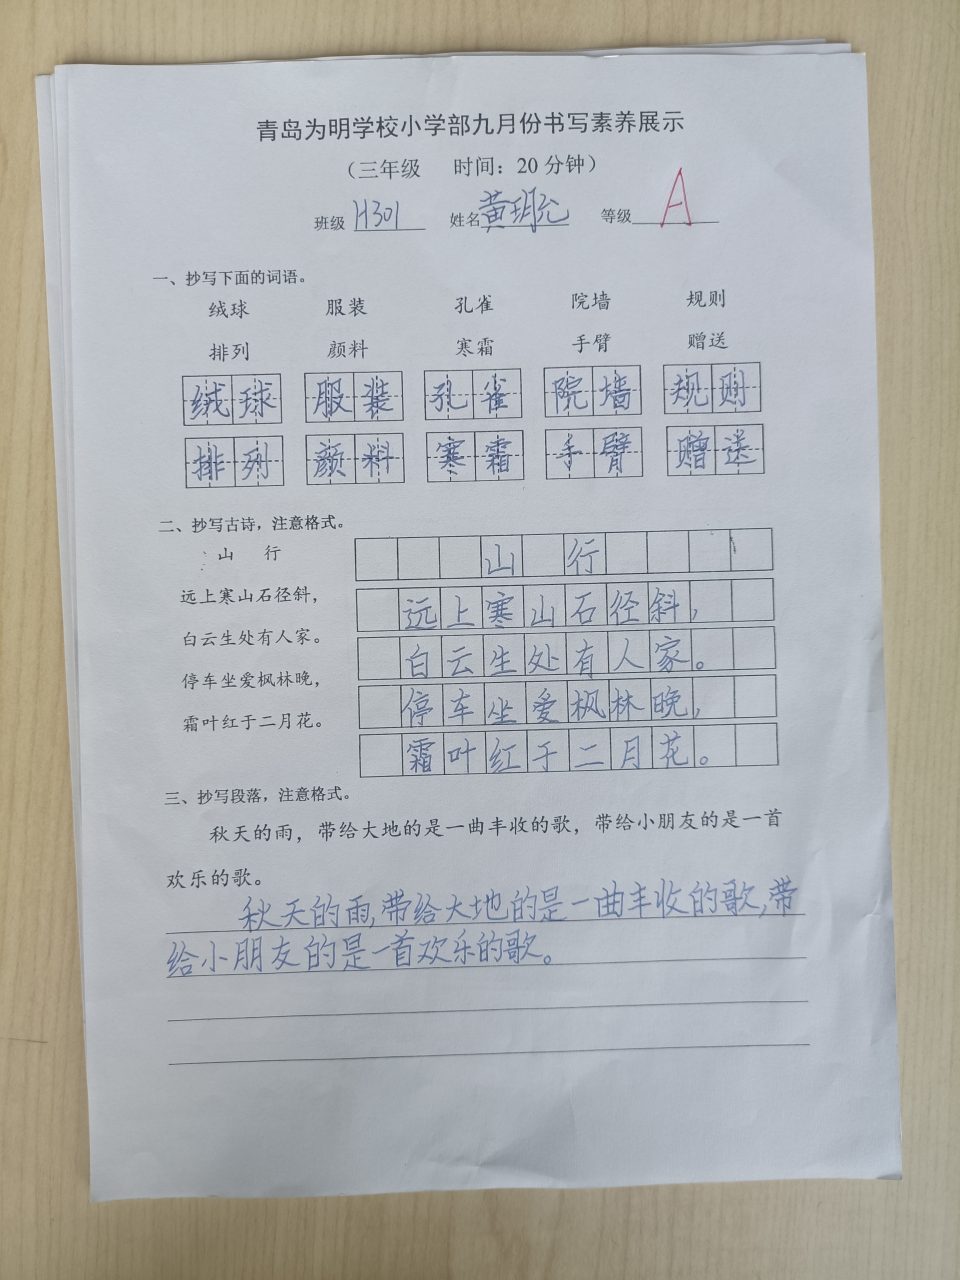 青岛为明学校小学部九月份书写素养展示
（三年级 时间：20 分钟）
班级 H301 姓名 黄玥允 等级 A
一、抄写下面的词语。
绒球 服装 孔雀 院墙 规则
排列 颜料 寒霜 手臂 赠送
绒球 服装 孔雀 院墙 规则
排列 颜料 寒霜 手臂 赠送
二、抄写古诗，注意格式。
山 行
远上寒山石径斜，
白云生处有人家。
停车坐爱枫林晚，
霜叶红于二月花。
山 行
远上寒山石径斜，
白云生处有人家。
停车坐爱枫林晚，
霜叶红于二月花。
三、抄写段落，注意格式。
秋天的雨，带给大地的是一曲丰收的歌，带给小朋友的是一首
欢乐的歌。
秋天的雨,带给大地的是一曲丰收的歌,带
给小朋友的是一首欢乐的歌。